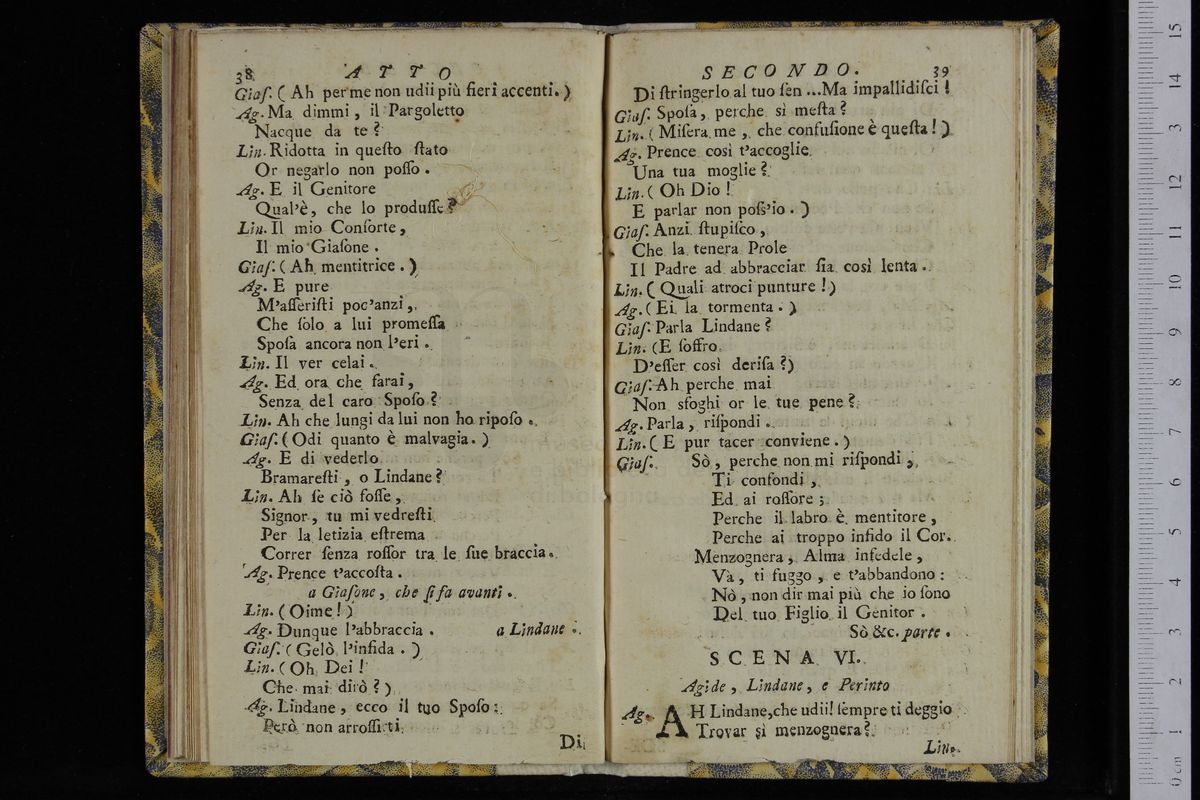 38 ATTO
Giaſ. ( Ah per me non udii più fieri accenti. )
Ag. Ma dimmi, il Pargoletto
Nacque da te?
Lin. Ridotta in queſto ſtato
Or negarlo non poſſo.
Ag. E il Genitore
Qual'è, che lo produſſe?
Lin. Il mio Conſorte,
Il mio Giaſone.
Giaſ. ( Ah mentitrice. )
Ag. E pure
M'aſſeriſti poc'anzi,
Che ſolo a lui promeſſa
Spoſa ancora non l'eri.
Lin. Il ver celai.
Ag. Ed ora che farai,
Senza del caro Spoſo?
Lin. Ah che lungi da lui non ho ripoſo.
Giaſ. ( Odi quanto è malvagia. )
Ag. E di vederlo
Bramareſti, o Lindane?
Lin. Ah ſe ciò foſſe,
Signor, tu mi vedreſti
Per la letizia eſtrema
Correr ſenza roſſor tra le ſue braccia.
Ag. Prence t'accoſta.
a Giaſone, che ſi fa avanti.
Lin. ( Oime! )
Ag. Dunque l'abbraccia. a Lindane.
Giaſ. ( Gelò l'infida. )
Lin. ( Oh Dei!
Che mai dirò? )
Ag. Lindane, ecco il tuo Spoſo:
Però non arroſſirti
Di
SECONDO. 39
Di ſtringerlo al tuo ſen ... Ma impallidiſci!
Giaſ. Spoſa, perche sì meſta?
Lin. ( Miſera me, che confuſione è queſta! )
Ag. Prence così t'accoglie
Una tua moglie?
Lin. ( Oh Dio!
E parlar non poſs'io. )
Giaſ. Anzi ſtupiſco,
Che la tenera Prole
Il Padre ad abbracciar ſia così lenta.
Lin. ( Quali atroci punture! )
Ag. ( Ei la tormenta. )
Giaſ. Parla Lindane?
Lin. (E ſoffro
D'eſſer così deriſa?)
Giaſ. Ah perche mai
Non sfoghi or le tue pene?
Ag. Parla, riſpondi.
Lin. ( E pur tacer conviene. )
Giaſ. Sò, perche non mi riſpondi,
Ti confondi,
Ed ai roſſore;
Perche il labro è mentitore,
Perche ai troppo infido il Cor.
Menzognera, Alma infedele,
Và, ti fuggo, e t'abbandono:
Nò, non dir mai più che io ſono
Del tuo Figlio il Genitor.
Sò &c. parte.
SCENA VI.
Agide, Lindane, e Perinto
Ag. AH Lindane, che udii! ſempre ti deggio
Trovar sì menzognera?
Lin.
0 cm 1 2 3 4 5 6 7 8 9 10 11 12 13 14 15